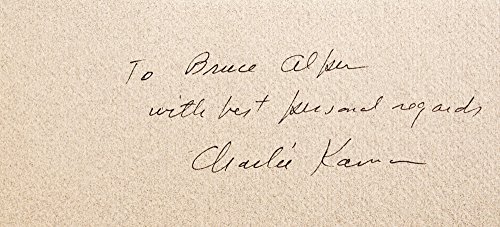 To Bruce Alper
with best personal regards
Charlie Kaman